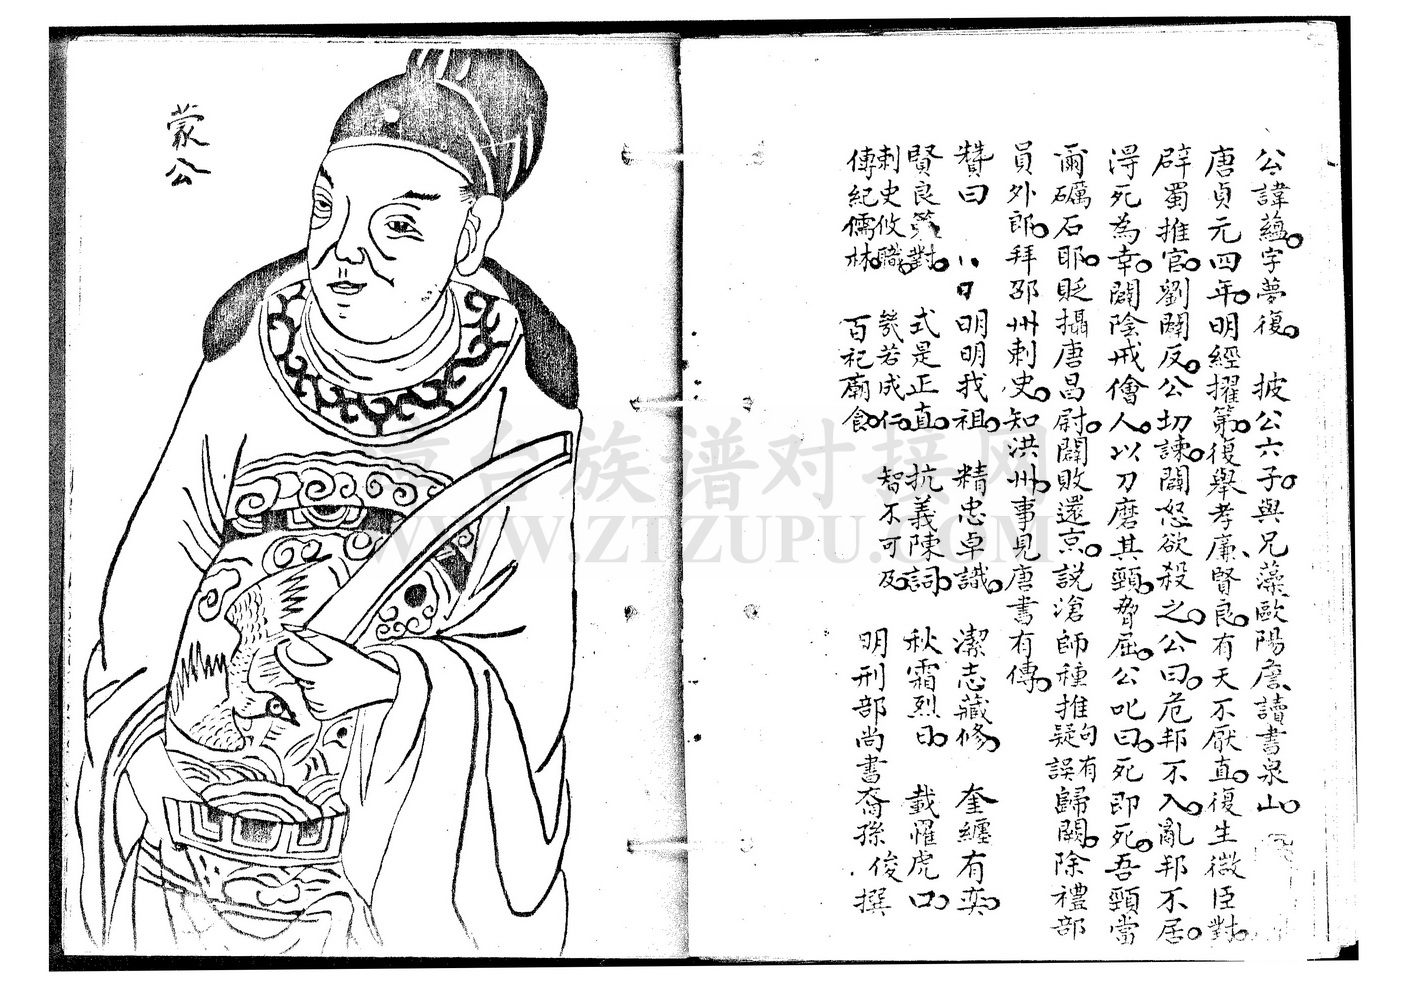 公諱蘊。字夢復。 披公六子。與兄藻歐陽詹、讀書泉山。
唐貞元四年。明經擢第。復舉孝廉、賢良。有天不厭直。復生微臣對。
辟蜀推官。劉闢反。公切諫。闢怒欲殺之。公曰。危邦不入。亂邦不居。
得死為幸。闢陰戒儈人。以刀磨其頸。脅屈。公叱曰。死即死。吾頸當
爾礪石耶。貶攝唐昌尉。闢敗還京。說滄師種推疑句有誤歸闕。除禮部
員外郎。拜邵州刺史。知洪州事見唐書有傳。
贊曰 八曰明明我祖。 精忠卓識。 潔志藏修。 奎纏有奕。
賢良 對。 式是正直。 抗義陳詞。 秋霜烈日。 載懼虎口。
刺史攸職。 幾若成仁。 智不可及。
傳紀儒林。 百祀廟食。 明刑部尚書裔孫俊撰
蒙公
臺台族谱对接网
WWW.ZTZUPU.COM